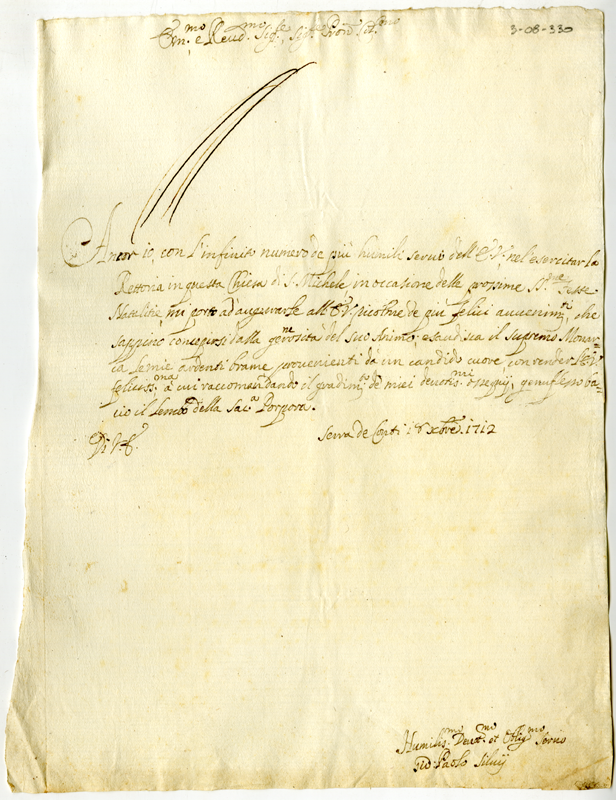 Em.mo e Reud.mo Sig.re, Sig.re Pron. Col.mo
3-08-330
Ancor io, con l'infinito numero de più humili serui dell'E.V. nel esercitar la
Rettoria in questa Chiesa di S. Michele, in occasione delle prossime SS.me Feste
Natalitie, mi porto ad augurarle all'E.V. più felici auuenim.ti, che
sappino concepirsi dalla generosità del suo Animo; esaudisca il supremo Monar-
ca le mie ardenti brame prouenienti da un candido cuore, con render l'E.V.
feliciss.ma a cui raccomandando il gradim.to de miei deuotis.mi ossequij; genuflesso ba-
cio il lembo della Sac.a Porpora.
Di V.E. Serra de Conti 18 Xbre. 1712
Humilis.mo Deuot.mo et Oblig.mo Seruo
Gio. Paolo Siluij